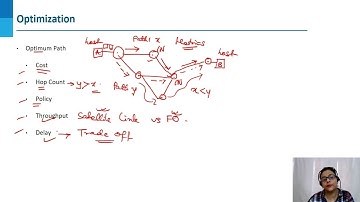 Optimization
host Path1 x Metrics
A N host
B
Optimum Path
Cost
Hop Count → y > x. Path y M x < y
Policy Z
Throughput Satellite Link vs FO.
Delay → Trade off